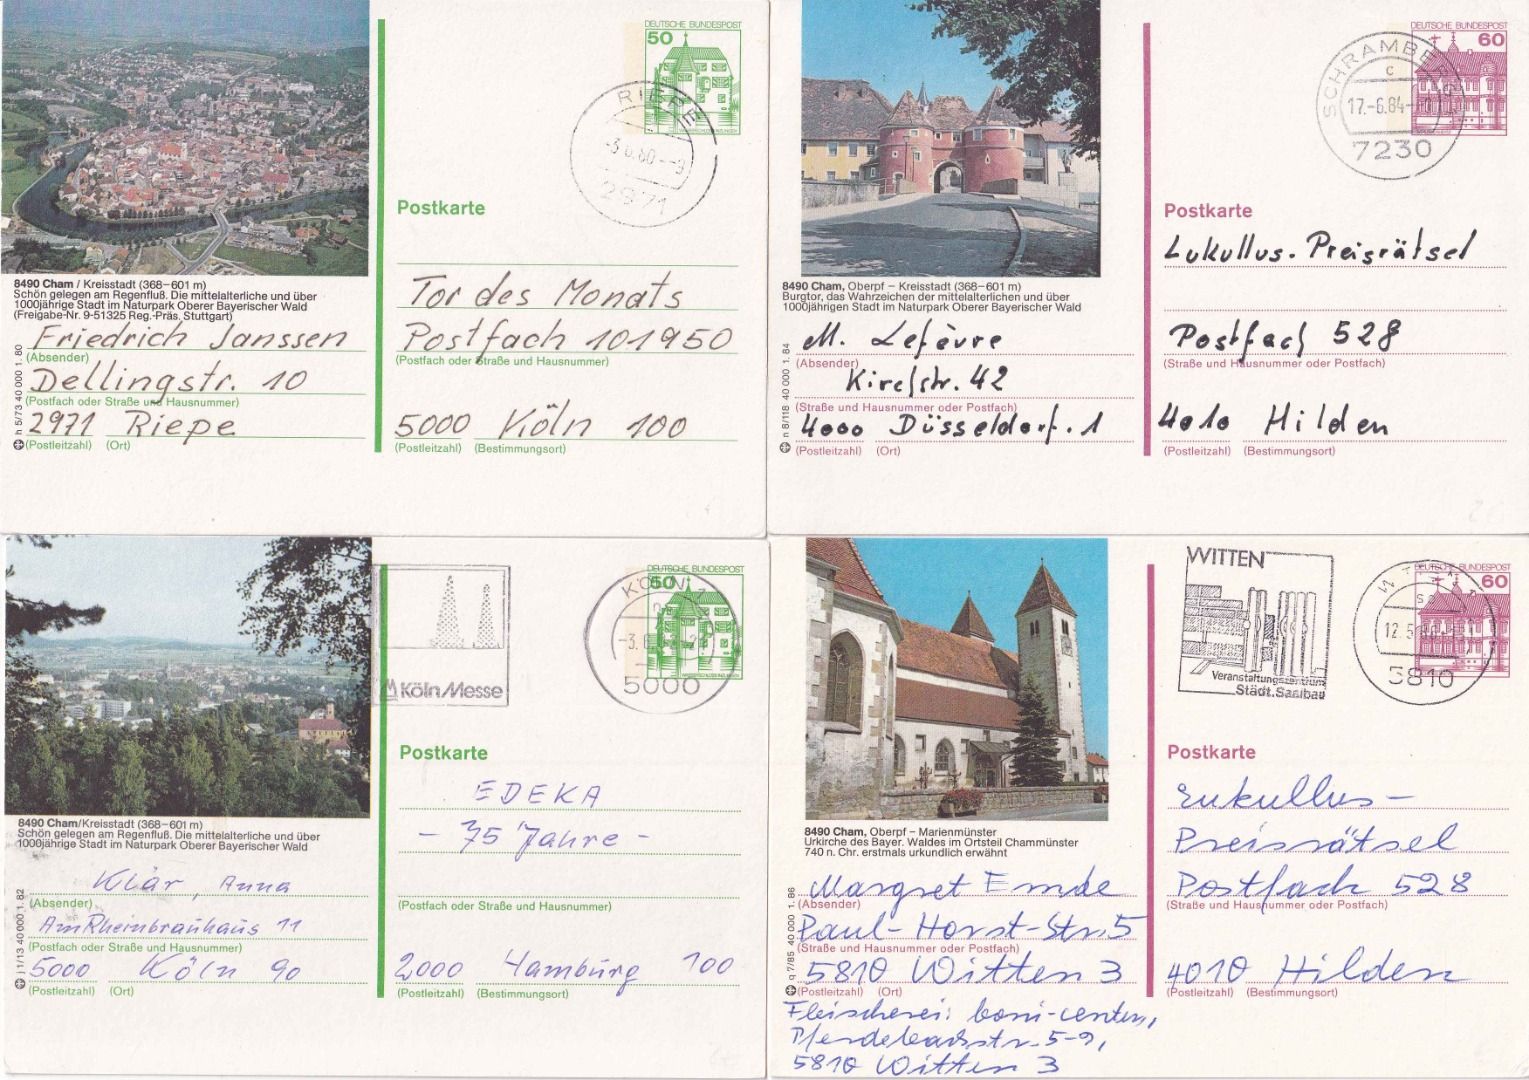 DEUTSCHE BUNDESPOST
50
WASSERSCHLOSS INZLINGEN
RIEPE
2971
Postkarte
8490 Cham / Kreisstadt (368–601 m)
Schön gelegen am Regenfluß. Die mittelalterliche und über
1000jährige Stadt im Naturpark Oberer Bayerischer Wald
(Freigabe-Nr. 9-51325 Reg.-Präs. Stuttgart)
Friedrich Janssen
(Absender)
Dellingstr. 10
(Postfach oder Straße und Hausnummer)
2971 Riepe
(Postleitzahl) (Ort)
h 5/73 40 000 1. 80
Tor des Monats
Postfach 101950
(Postfach oder Straße und Hausnummer)
5000 Köln 100
(Postleitzahl) (Bestimmungsort)
DEUTSCHE BUNDESPOST
60
SCHRAMBERG
c
17.-6.84
7230
Postkarte
8490 Cham, Oberpf – Kreisstadt (368–601 m)
Burgtor, das Wahrzeichen der mittelalterlichen und über
1000jährigen Stadt im Naturpark Oberer Bayerischer Wald
M. Lefèvre
(Absender)
Kirchstr. 42
(Straße und Hausnummer oder Postfach)
4000 Düsseldorf. 1
(Postleitzahl) (Ort)
n 8/118 40 000 1. 84
Lukullus. Preisrätsel
Postfach 528
(Straße und Hausnummer oder Postfach)
4010 Hilden
(Postleitzahl) (Bestimmungsort)
KölnMesse
DEUTSCHE BUNDESPOST
50
KÖLN
5000
WASSERSCHLOSS INZLINGEN
Postkarte
8490 Cham/Kreisstadt (368–601 m)
Schön gelegen am Regenfluß. Die mittelalterliche und über
1000jährige Stadt im Naturpark Oberer Bayerischer Wald
Klär, Anna
(Absender)
Am Rheinbrauhaus 11
(Postfach oder Straße und Hausnummer)
5000 Köln 90
(Postleitzahl) (Ort)
j 1/13 40 000 1. 82
EDEKA
- 75 Jahre -
(Postfach oder Straße und Hausnummer)
2000 Hamburg 100
(Postleitzahl) (Bestimmungsort)
WITTEN
Veranstaltungszentrum
Städt. Saalbau
DEUTSCHE BUNDESPOST
60
5810
Postkarte
8490 Cham, Oberpf – Marienmünster
Urkirche des Bayer. Waldes im Ortsteil Chammünster
740 n. Chr. erstmals urkundlich erwähnt
Margret Emde
(Absender)
Paul-Horst-Str. 5
(Straße und Hausnummer oder Postfach)
5810 Witten 3
(Postleitzahl) (Ort)
q 7/85 40 000 1. 86
Fleischerei: boni-center,
5-9,
5810 Witten 3
Lukullus-
Preisrätsel
Postfach 528
(Straße und Hausnummer oder Postfach)
4010 Hilden
(Postleitzahl) (Bestimmungsort)